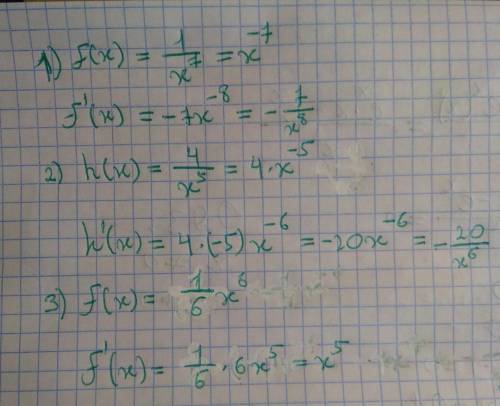 1) f(x) = 1/x⁷ = x⁻⁷
f'(x) = -7x⁻⁸ = -7/x⁸
2) h(x) = 4/x⁵ = 4·x⁻⁵
h'(x) = 4·(-5)x⁻⁶ = -20x⁻⁶ = -20/x⁶
3) f(x) = 1/6 x⁶
f'(x) = 1/6 · 6x⁵ = x⁵